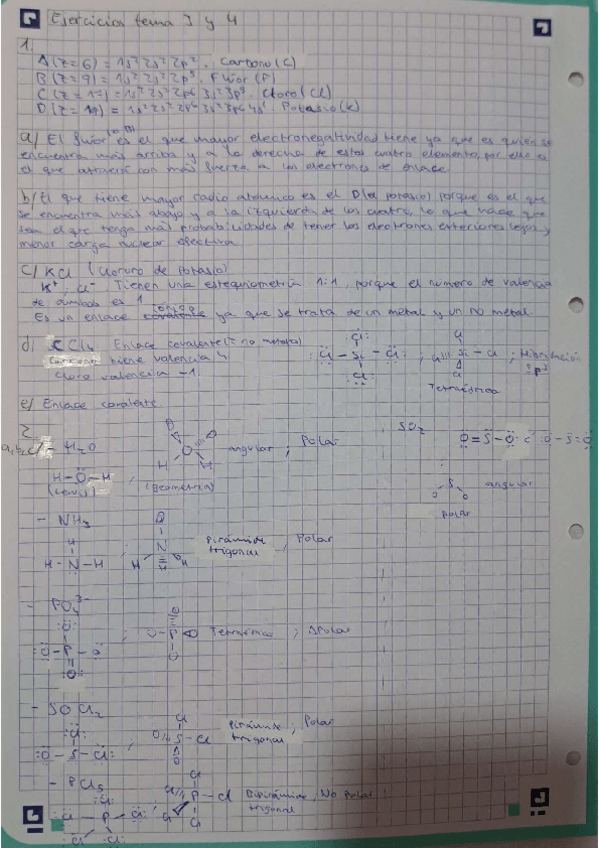 Ejercicios tema 3 y 4
1.
A (Z=6) = 1s² 2s² 2p². Carbono (C)
B (Z=9) = 1s² 2s² 2p⁵. Flúor (F)
C (Z=17) = 1s² 2s² 2p⁶ 3s² 3p⁵. Cloro (Cl)
D (Z=19) = 1s² 2s² 2p⁶ 3s² 3p⁶ 4s¹. Potasio (K)
a) El flúor es el que mayor electronegatividad tiene ya que es quien se
encuentra más arriba y a la derecha de estos cuatro elementos, por ello es
el que atraerá con más fuerza a los electrones de enlace.
b) El que tiene mayor radio atómico es el D (el potasio) porque es el que
se encuentra más abajo y a la izquierda de los cuatro, lo que hace que
sea el que tenga más probabilidades de tener los electrones exteriores lejos y
menor carga nuclear efectiva.
c) KCl (Cloruro de potasio)
K⁺ ; Cl⁻ Tienen una estequiometría 1:1, porque el número de valencia
de ambos es 1
iónico
Es un enlace covalente ya que se trata de un metal y un no metal
d) CCl₄ Enlace covalente (2 no metales)
Carbono tiene valencia 4
Cloro valencia -1.
Cl
Cl - Si - Cl ; Cl Si - Cl ; Hibridación
Cl
sp³
Tetraédrica
e) Enlace covalente.
2.
a, b, c) - H₂O
H - O - H
(Lewis)
O
H H
(geometría)
angular ; Polar
SO₂
O = S - O O - S = O
S
O O
angular
polar
- NH₃
H
H - N - H
N
H H
Pirámide
trigonal , Polar
- PO₄³⁻
O
O - P - O
O
; O
O - P O
O
Tetraédrica ; Apolar
- SOCl₂
Cl
O - S - Cl
; Cl
O S - Cl
Pirámide
trigonal ; Polar
- PCl₅
Cl
Cl - P - Cl
Cl Cl
Cl
Cl P - Cl
Cl Cl
Bipirámide
trigonal , No polar